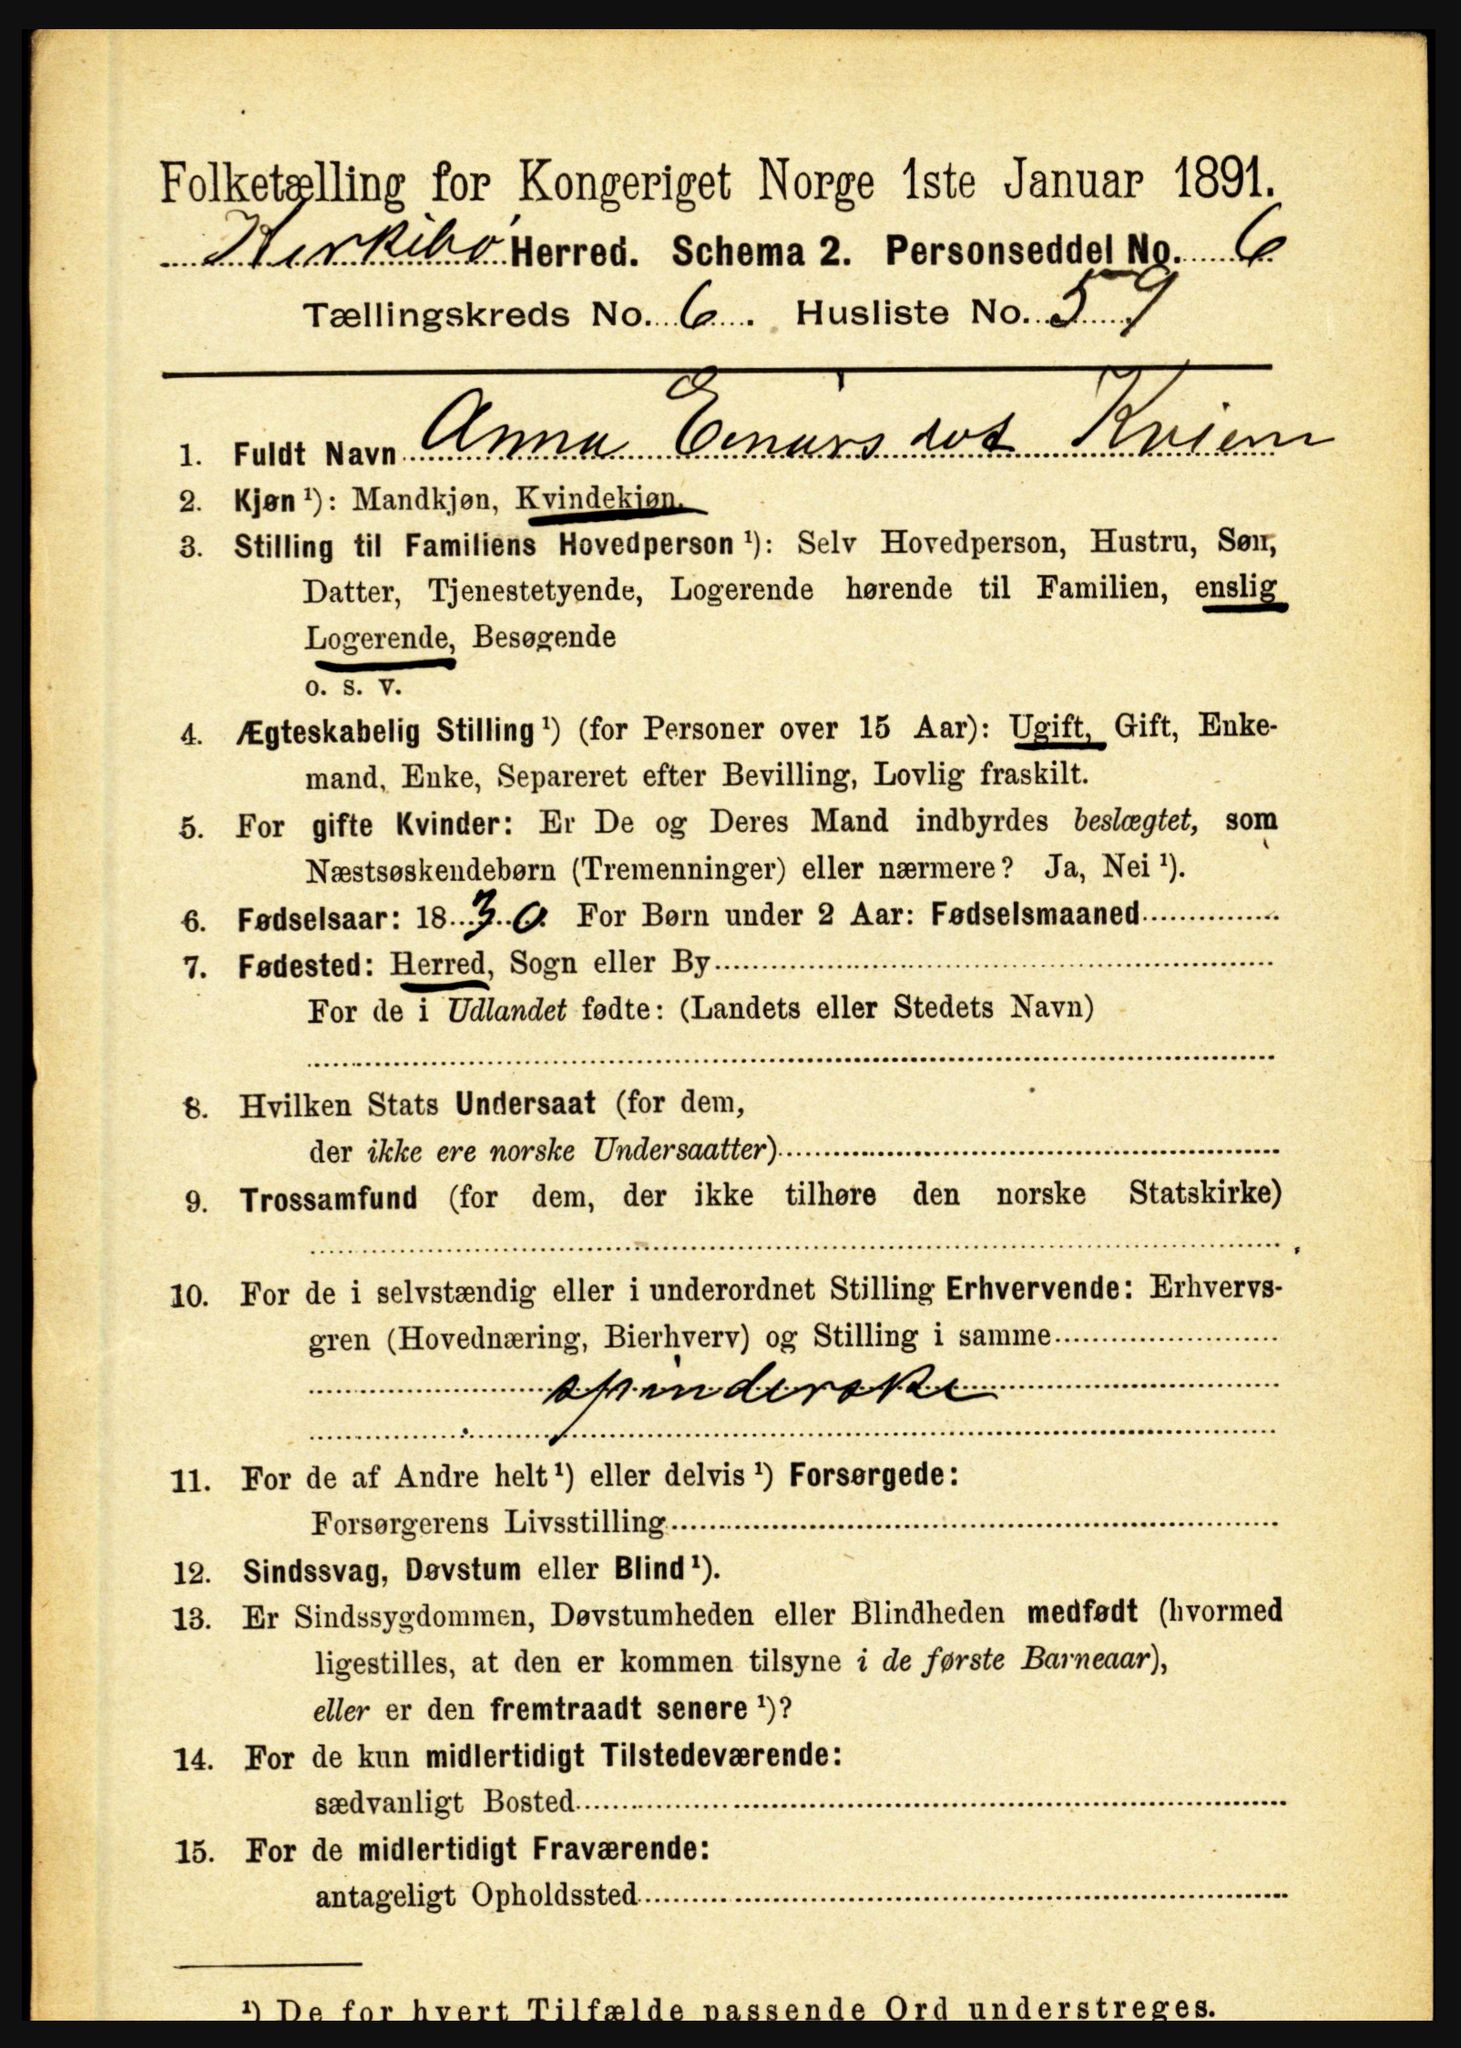 Folketælling for Kongeriget Norge 1ste Januar 1891.
Kirkibø Herred. Schema 2. Personseddel No. 6
Tællingskreds No. 6. Husliste No. 59
1. Fuldt Navn Anna Einarsdot Kviem
2. Kjøn ¹): Mandkjøn, Kvindekjøn.
3. Stilling til Familiens Hovedperson ¹): Selv Hovedperson, Hustru, Søn,
Datter, Tjenestetyende, Logerende hørende til Familien, enslig
Logerende, Besøgende
o. s. v.
4. Ægteskabelig Stilling ¹) (for Personer over 15 Aar): Ugift, Gift, Enke-
mand, Enke, Separeret efter Bevilling, Lovlig fraskilt.
5. For gifte Kvinder: Er De og Deres Mand indbyrdes beslægtet, som
Næstsøskendebørn (Tremenninger) eller nærmere? Ja, Nei ¹).
6. Fødselsaar: 1830. For Børn under 2 Aar: Fødselsmaaned
7. Fødested: Herred, Sogn eller By
For de i Udlandet fødte: (Landets eller Stedets Navn)
8. Hvilken Stats Undersaat (for dem,
der ikke ere norske Undersaatter)
9. Trossamfund (for dem, der ikke tilhøre den norske Statskirke)
10. For de i selvstændig eller i underordnet Stilling Erhvervende: Erhvervs-
gren (Hovednæring, Bierhverv) og Stilling i samme
spinderske
11. For de af Andre helt ¹) eller delvis ¹) Forsørgede:
Forsørgerens Livsstilling
12. Sindssvag, Døvstum eller Blind ¹).
13. Er Sindssygdommen, Døvstumheden eller Blindheden medfødt (hvormed
ligestilles, at den er kommen tilsyne i de første Barneaar),
eller er den fremtraadt senere ¹)?
14. For de kun midlertidigt Tilstedeværende:
sædvanligt Bosted
15. For de midlertidigt Fraværende:
antageligt Opholdssted
¹) De for hvert Tilfælde passende Ord understreges.